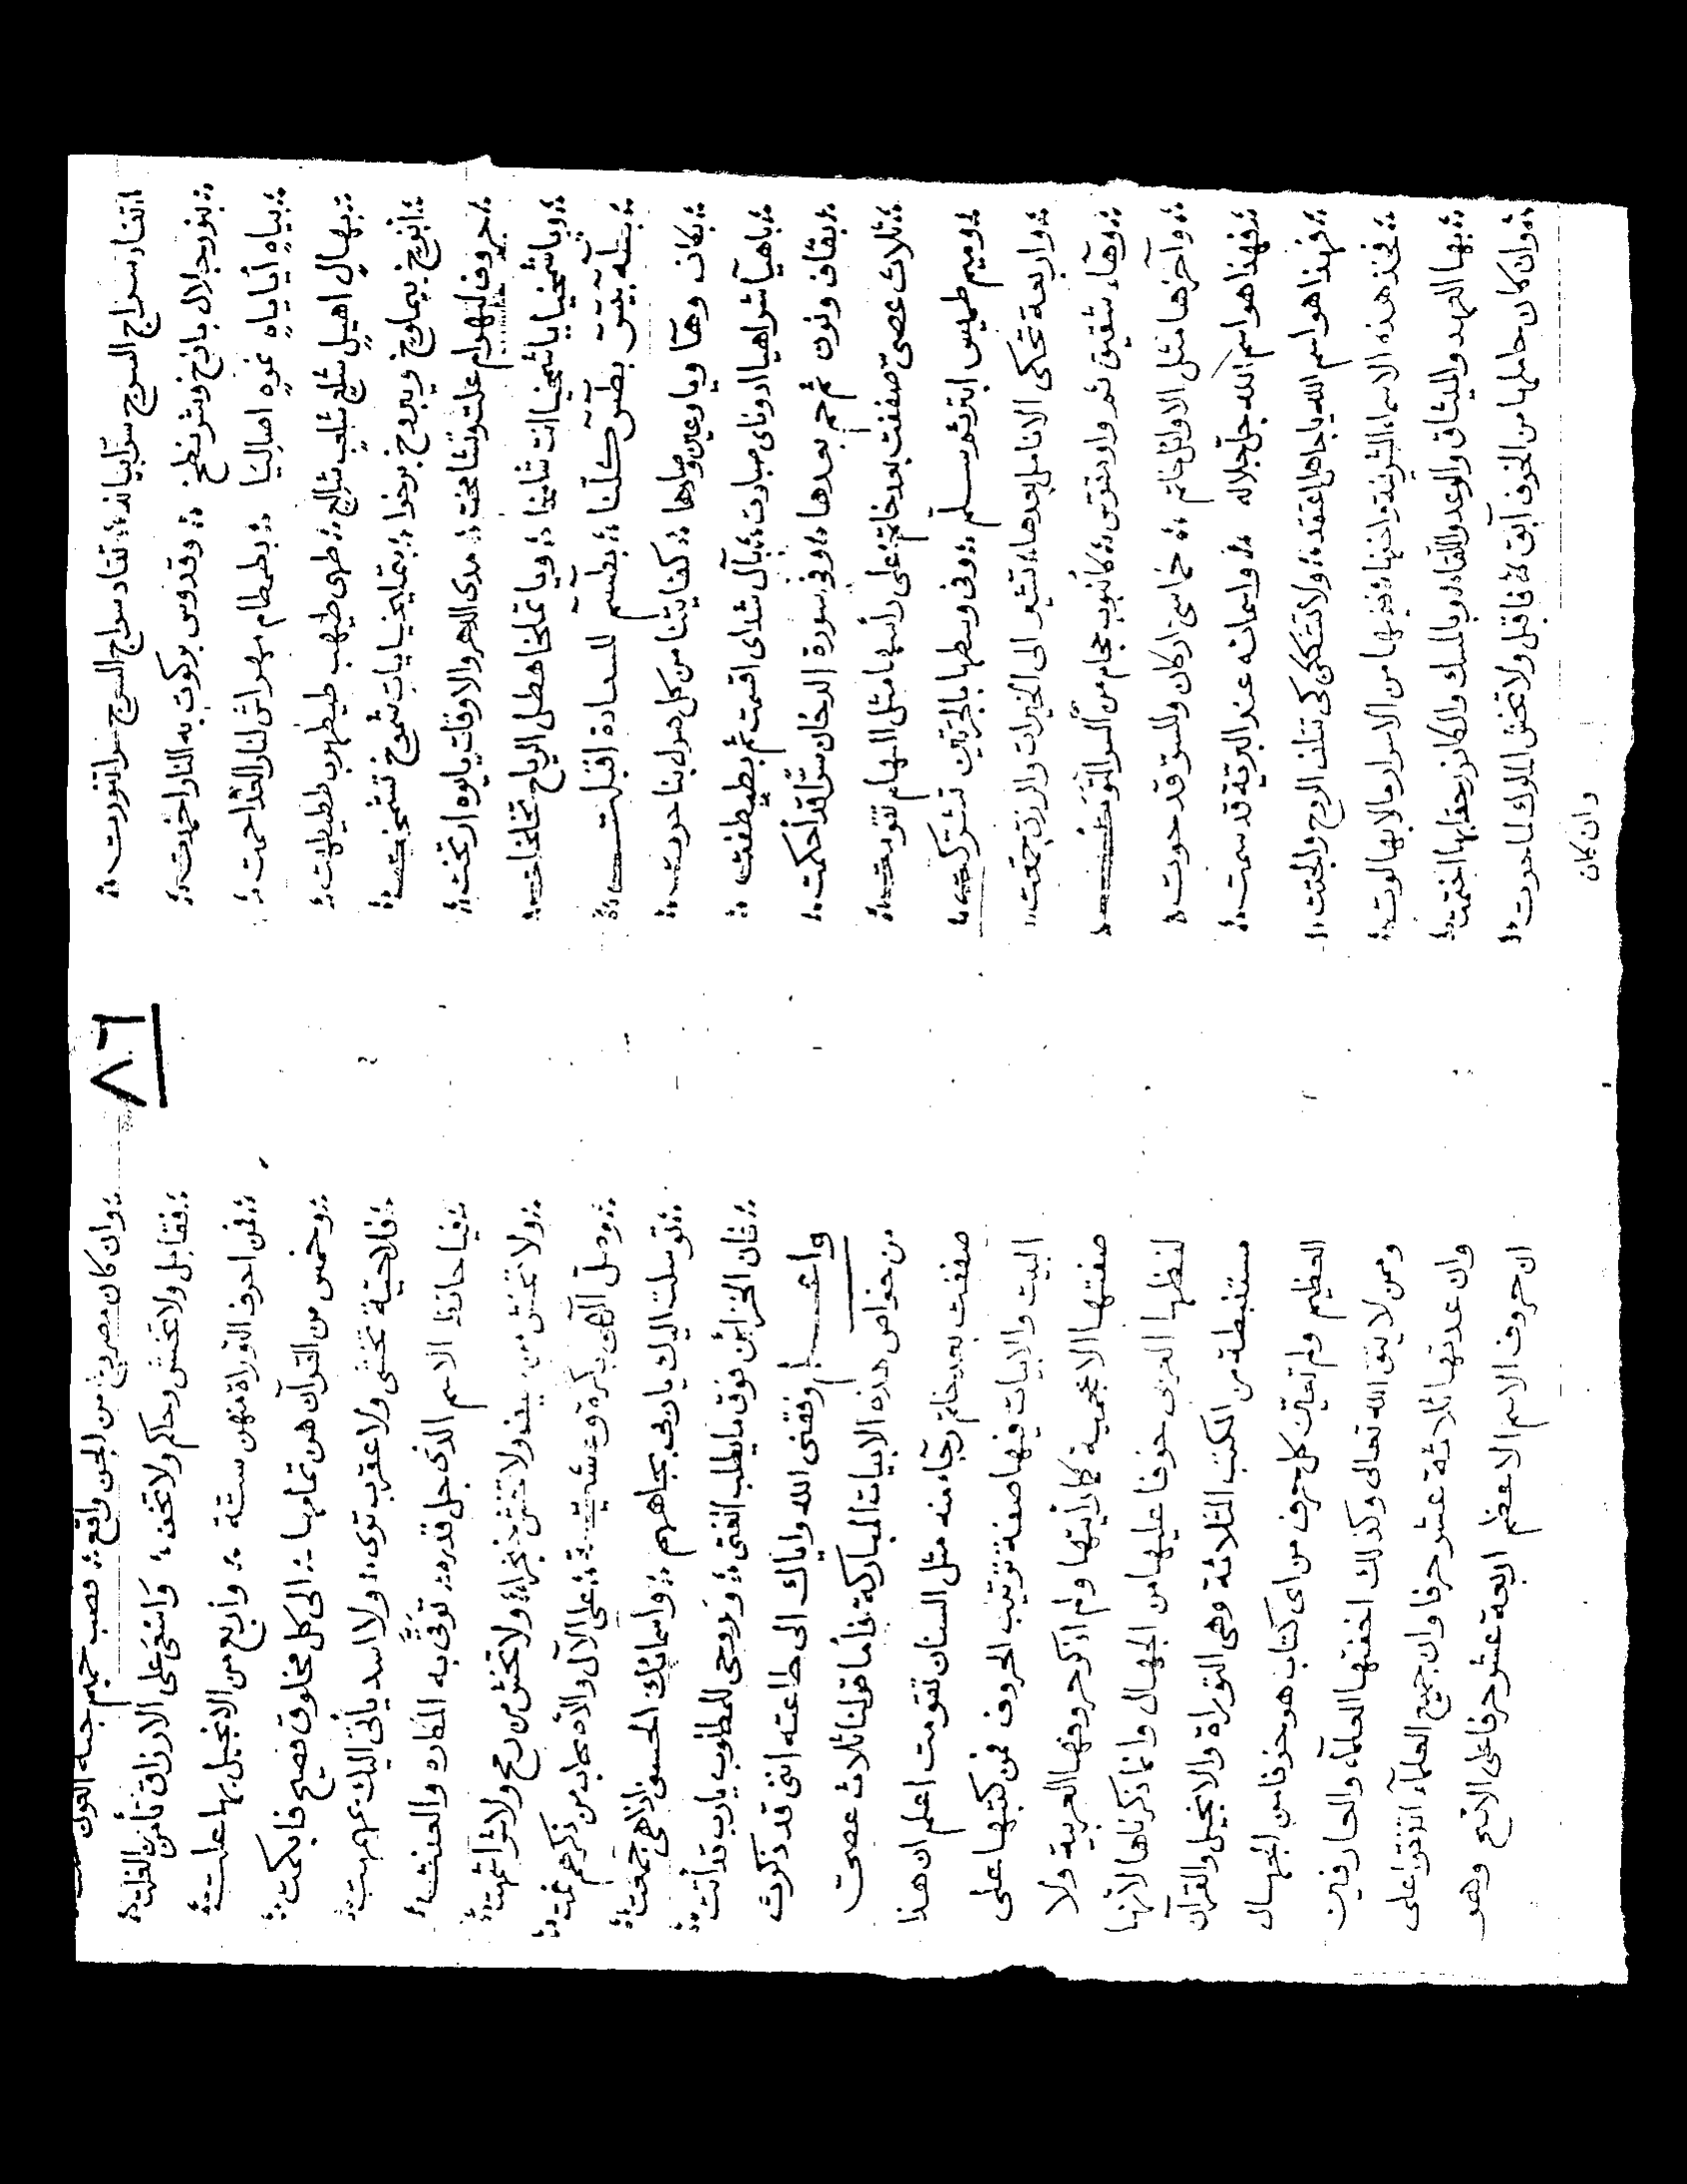 تقاد سراج السرج سرا بيانه ؞ تقاد سراج السرج سرا تنورت ؞
بنور جلال بازخ وشرنطخ ؞ وقدوس بركوت به النار اخمدت ؞
بياه أياياه نموه اصاليا ؞ بطمطام مهراش لنار العدا خمت ؞
بهال اهيل شلع شلعب شالع ؞ طهى طيهب طيطهوب طيطهت ؞
انوخ بيملوخ وبروخ برخوا ؞ بتمليخيا يات شموخ تشمخت ؞
حروف لبهرام علت وتشامخت ؞ مدى الدهر والاوقات يايوه ارتخت ؞
ويا شمخيا يا شمخيا انت شلمخا ؞ ويا تملخا هطل الرياح تخلخلت ؞
بسله بيتق بطسق كلنا ؞ بطسم للسعادة اقبلت ؞
بكاف وها ويا وعين وصادها ؞ كفايتنا من كل سوء بنا حوت ؞
باهيا شراهيا ادوناى صباوت ؞ بآل شداى اقسمت ثم بطيطغت ؞
بقاف ونون ثم حم بعدها ؞ وفى سورة الدخان سرا قد أحكمت ؞
ثلاث عصى صففت بعد خاتم ؞ على رأسها مثل السهام تقومت ؞
وميم طميس ابتر ثم سلم ؞ وفى وسطها بالجرتين تشركت ؞
واربعة تحكى الانامل بعدها ؞ تشير الى الخيرات والرزق جمعت ؞
وهآء شقيق ثم واو تقوس ؞ كانبوب حجام من السر التوت ؞
وآخرها مثل الاوائل خاتم ؞ خماسى اركان وللسر قد حوت ؞
فهذا هو اسم الله جل جلاله ؞ واسمائه عند البرية قد سمت ؞
فهذا هو اسم الله يا جاهل اعتقد ؞ ولا تشكك كى تتلف الروح والجثت ؞
فخذ هذه الاسماء الشريفة واخفها ؞ ففيها من الاسرار ما لابها لوت ؞
بها العهد والميثاق والوعد واللقاء ؞ وبالمسك والكافور حقا بها اختمت ؞
وان كان حاملها من الخوف آبق ؞ فاقبل ولا تخش الملوك لما حوت ؞
وان كان
٨٦
وان كان مصروع من الجن واقع ؞ فصب حميم جبه العون
فقابل ولا تخش وحاكم ولا تخف ؞ واسعى على الارزاق تأمن الغلت ؞
فمن احرف التوراة منهن ستة ؞ وأربع من الانجيل بها علت ؞
وخمس من القرآن هن تمامها ؞ الى كل مخلوق فصيح فابكمت ؞
فلا حية تخشى ولا عقرب ترى ؞ ولا اسد يأتى اليك بهمهمت ؞
فيا حافظ الاسم الذى جل قدره ؞ توقى به المكاره والعنت ؞
ولا تخش من سيف ولا تخش خنجرا ؞ ولا تخش من رمح ولا شر اسهمت ؞
وصل الهى بكرة وعشية ؞ على الآل والأصحاب من ذكرهم نمت ؞
توسلت اليك يا ربى بجاههم ؞ واسمائك الحسنى الاهى جمعت ؞
فان الخزائن فوق ما يطلب الفتى ؞ وروحى للمطلوب يارب قد أتت ؞
واعــلم وفقنى الله واياك الى طاعته اننى قد ذكرت
من خواص هذه الابيات المباركة فأما قولنا ثلاث عصى
صففت بعد خاتم وجآء منه مثل السنان تقومت اعلم ان هذا
البيت والابيات فيها صفة ترتيب الحروف فمن كتبها على
صفتها الاعجمية كما رأيتها ولم اذكر حروفها العربية ولا
لفظها العربى خوفا عليها من الجهال وانما ذكرناها لأنها
مستنبطة من الكتب الثلاثة وهى التوراة والانجيل والقرآن
العظيم ولم تعيّن كل حرف من اى كتاب هو خوفا من الجهال
وممن لا يتق الله تعالى وكذلك اخفتها العلمآء والعارفين
وان عدتها ثلاثة عشر حرفا وان جميع العلمآء اتفقوا على
ان حروف الاسم الاعظم اربعة عشر حرفا على الاصح وهو